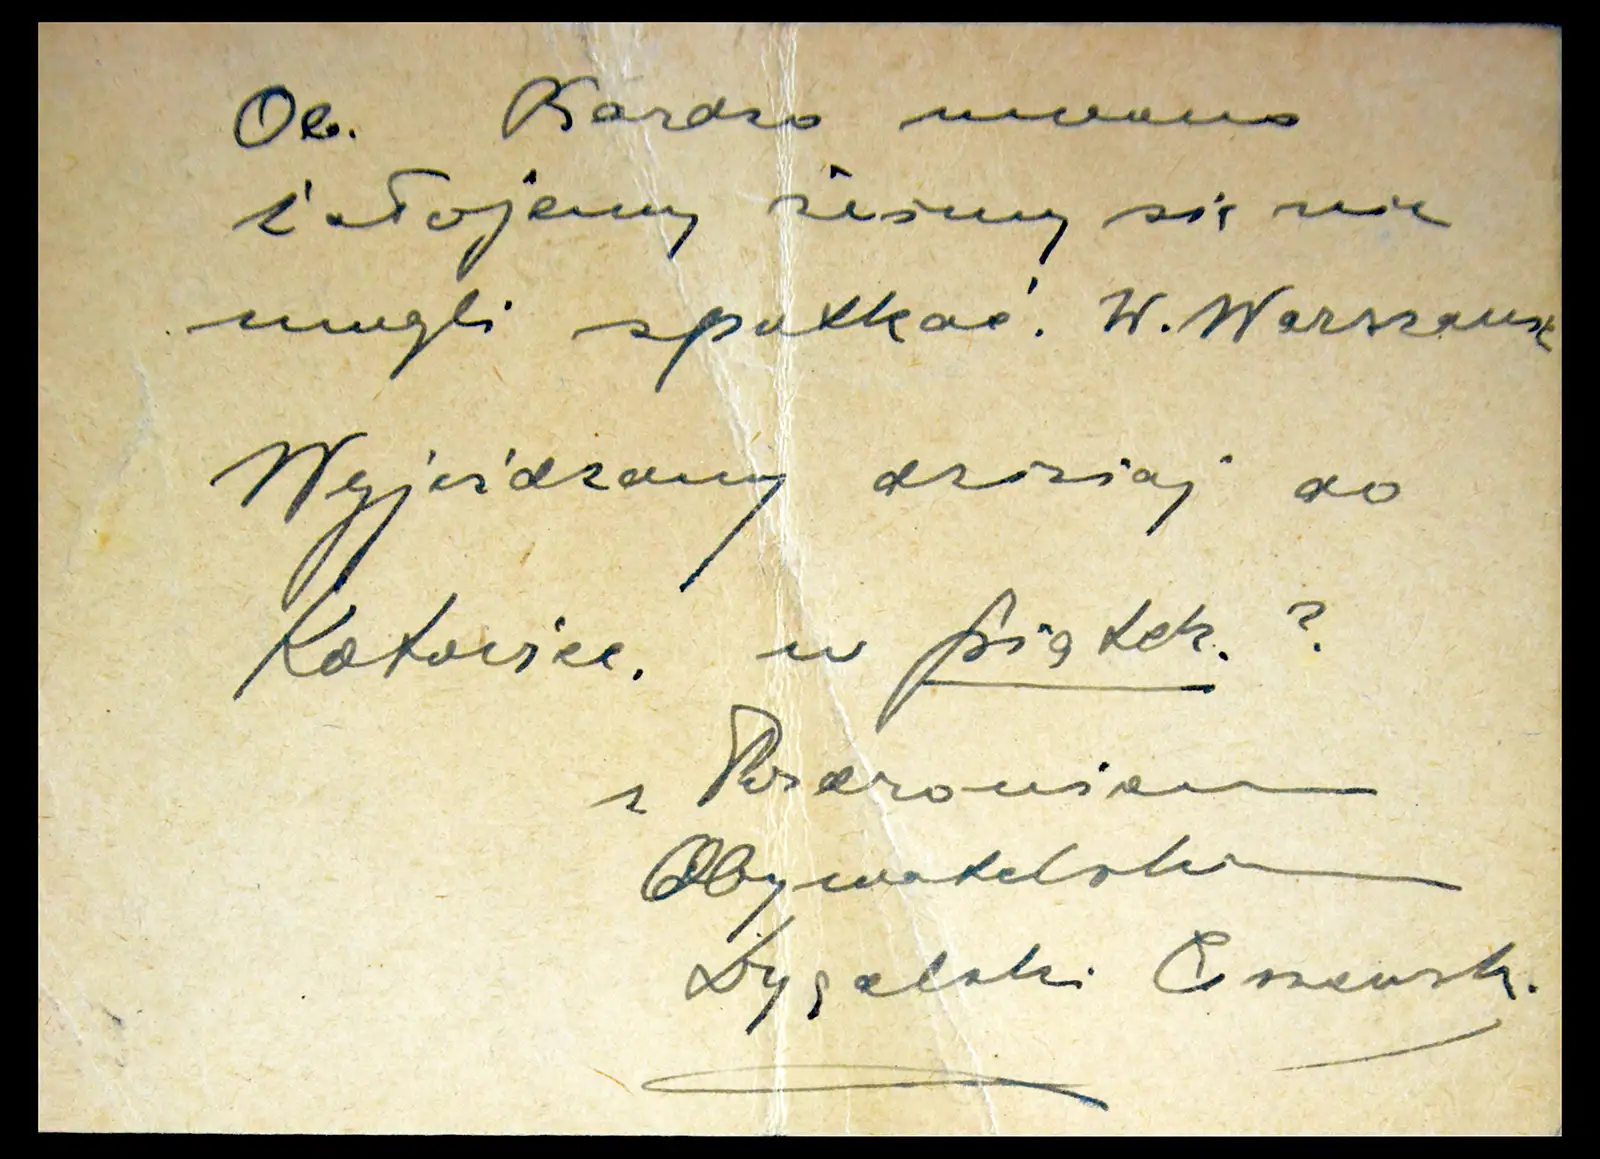 Ob. Bardzo
żałujemy żeśmy się nie
mogli spotkać. W. Warszawie
Wyjeżdzamy dzisiaj do
Katowice. w piątek. ?
z Pozdrowieniem
Obywatelskim
Dygalski